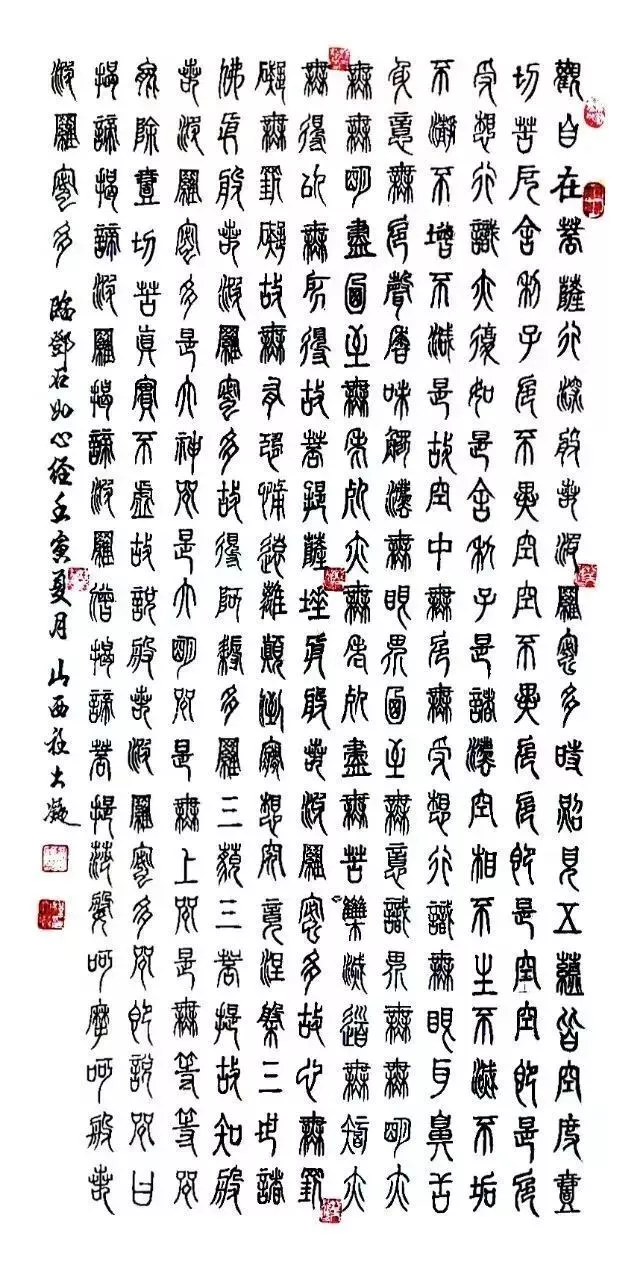 觀自在菩薩行深般若波羅蜜多時照見五蘊皆空度壹
切苦厄舍利子色不異空空不異色色即是空空即是色
受想行識亦復如是舍利子是諸法空相不生不滅不垢
不淨不增不減是故空中無色無受想行識無眼耳鼻舌
身意無色聲香味觸法無眼界乃至無意識界無無明亦
無無明盡乃至無老死亦無老死盡無苦集滅道無智亦
無得以無所得故菩提薩埵依般若波羅蜜多故心無罣
礙無罣礙故無有恐怖遠離顛倒夢想究竟涅槃三世諸
佛依般若波羅蜜多故得阿耨多羅三藐三菩提故知般
若波羅蜜多是大神咒是大明咒是無上咒是無等等咒
能除壹切苦真實不虛故說般若波羅蜜多咒即說咒曰
揭諦揭諦波羅揭諦波羅僧揭諦菩提莎婆呵摩呵般若
波羅蜜多 臨鄧石如心經壬寅夏月山西